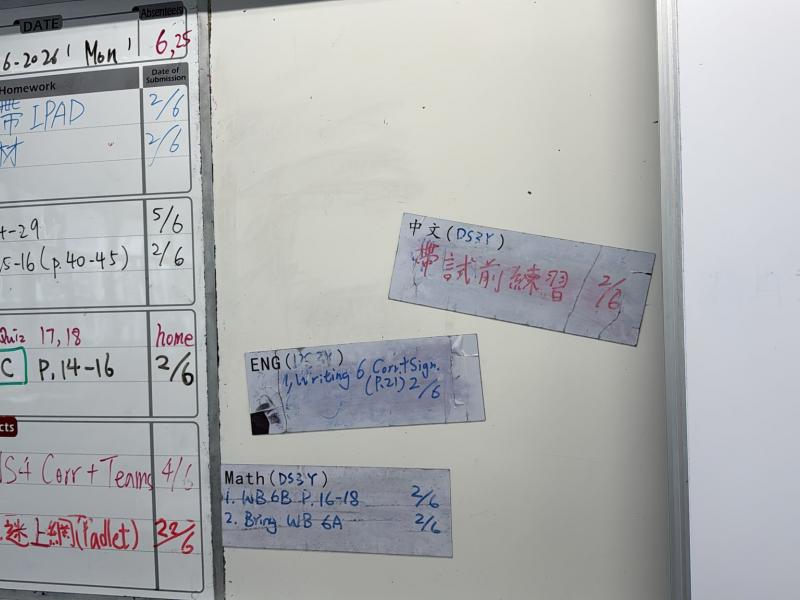 DATE
Absentee(s)
6-2026 ' Mon '
6,25
Homework
Date of Submission
帶 IPAD 2/6
材 2/6
4-29 5/6
5-16 (p.40-45) 2/6
Quiz 17,18 home
C P.14-16 2/6
cts
S4 Corr + Teams 4/6
迷上網(Padlet) 22/6
中文(DS3Y)
帶試前練習 2/6
ENG(DS3Y)
1, Writing 6 Corr.+Sign.
(P.21) 2/6
Math(DS3Y)
1. WB 6B P.16-18 2/6
2. Bring WB 6A 2/6